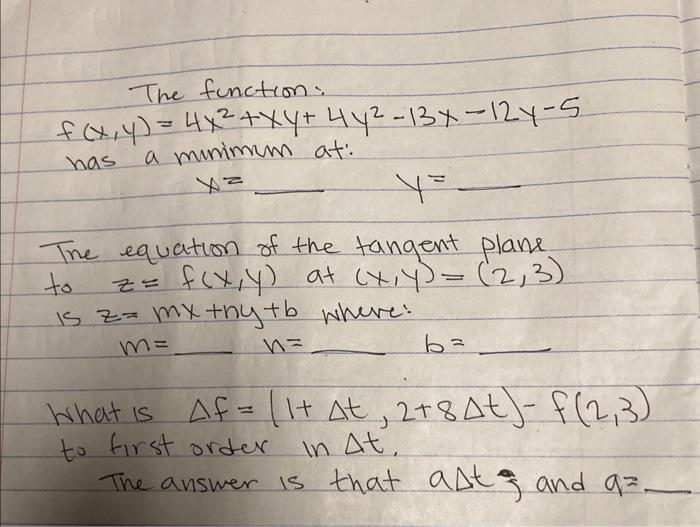 The function:
f(x,y) = 4x² + xy + 4y² - 13x - 12y - 5
has a minimum at:
x = ____ y = ____
The equation of the tangent plane
to z = f(x,y) at (x,y) = (2,3)
is z = mx + ny + b where:
m = ____ n = ____ b = ____
What is Δf = (1 + Δt, 2 + 8Δt) - f(2,3)
to first order in Δt.
The answer is that aΔt ; and a = ____